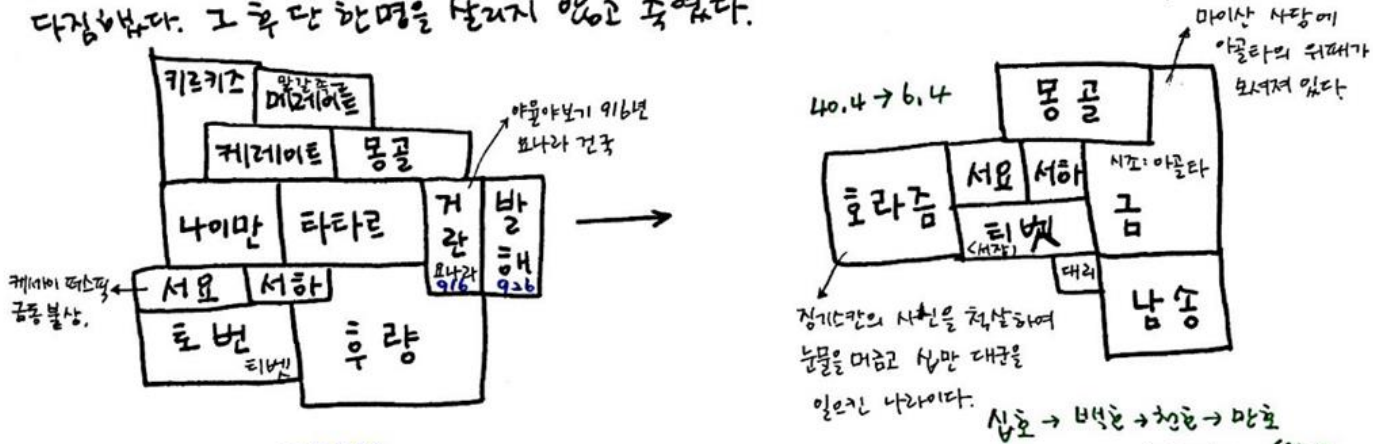 다짐했다. 그 후 단 한명을 살리지 않고 죽였다.
키르키즈
말갈족
메르게이트
케레이트
몽골
야율아보기 916년
요나라 건국
나이만
타타르
거란
요나라
916
발해
926
케세이 퍼스픽
금동불상.
서요
서하
토번
티벳
후량
마이산 사당에
아골타의 위패가
모셔져 있다.
40.4 → 6.4
몽골
호라즘
서요
서하
시조: 아골타
금
티벳
<서장>
대리
남송
징기스칸의 사신을 척살하여
눈물을 머금고 십만 대군을
일으킨 나라이다.
십호 → 백호 → 천호 → 만호